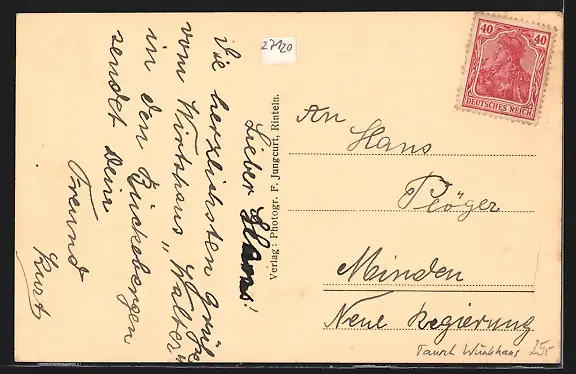 27120
40 40
DEUTSCHES REICH
Lieber Hans!
Die herzlichsten Grüße
vom Wirtshaus "Walter"
in den Bückebergen
sendet Dein
Freund
Kurt
Verlag: Photogr. F. Jungcurt, Rinteln.
An
Hans
Plöger
Minden
Neue Regierung
Tausch Wirtshaus 25,-